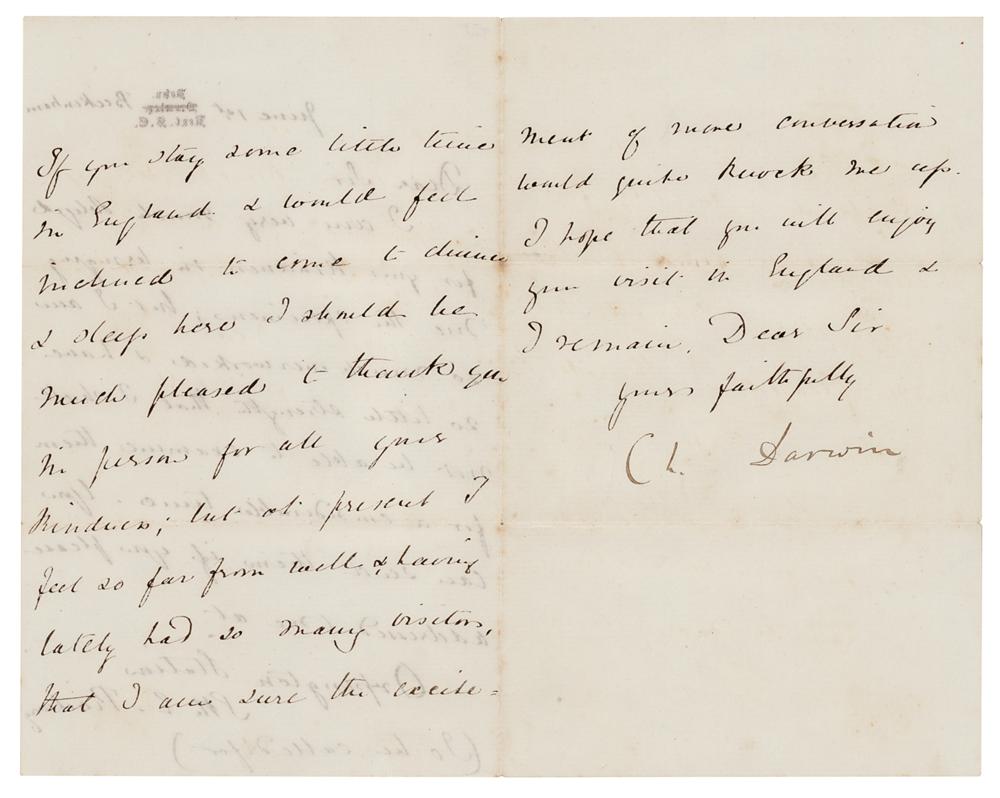 If you stay some little time
in England & would feel
inclined to come to dinner
& sleep here I should be
much pleased to thank you
in person for all your
kindness; but at present I
feel so far from well & having
lately had so many visitors,
that I am sure the excite=
ment of more conversation
would quite knock me up.
I hope that you will enjoy
your visit in England &
I remain, Dear Sir
yours faithfully
Ch. Darwin